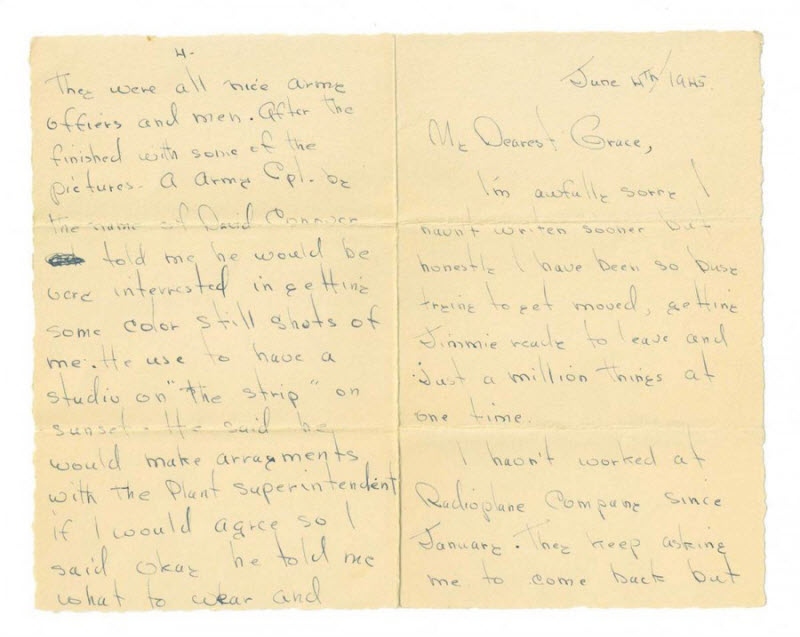 4.
They were all nice army
offiers and men. After the
finished with some of the
pictures. a army Cpl. by
the name of David Conover
told me he would be
very interrested in getting
some color still shots of
me. He use to have a
studio on "the strip" on
sunset. He said he
would make arragments
with the Plant superintendent
if I would agree so I
said okay he told me
what to wear and
June 4th/1945.
My Dearest Grace,
I'm awfully sorry I
havn't writen sooner but
honestly I have been so busy
trying to get moved, getting
Jimmie ready to leave and
Just a million things at
one time.
I havn't worked at
Radioplane Company since
January. They keep asking
me to come back but